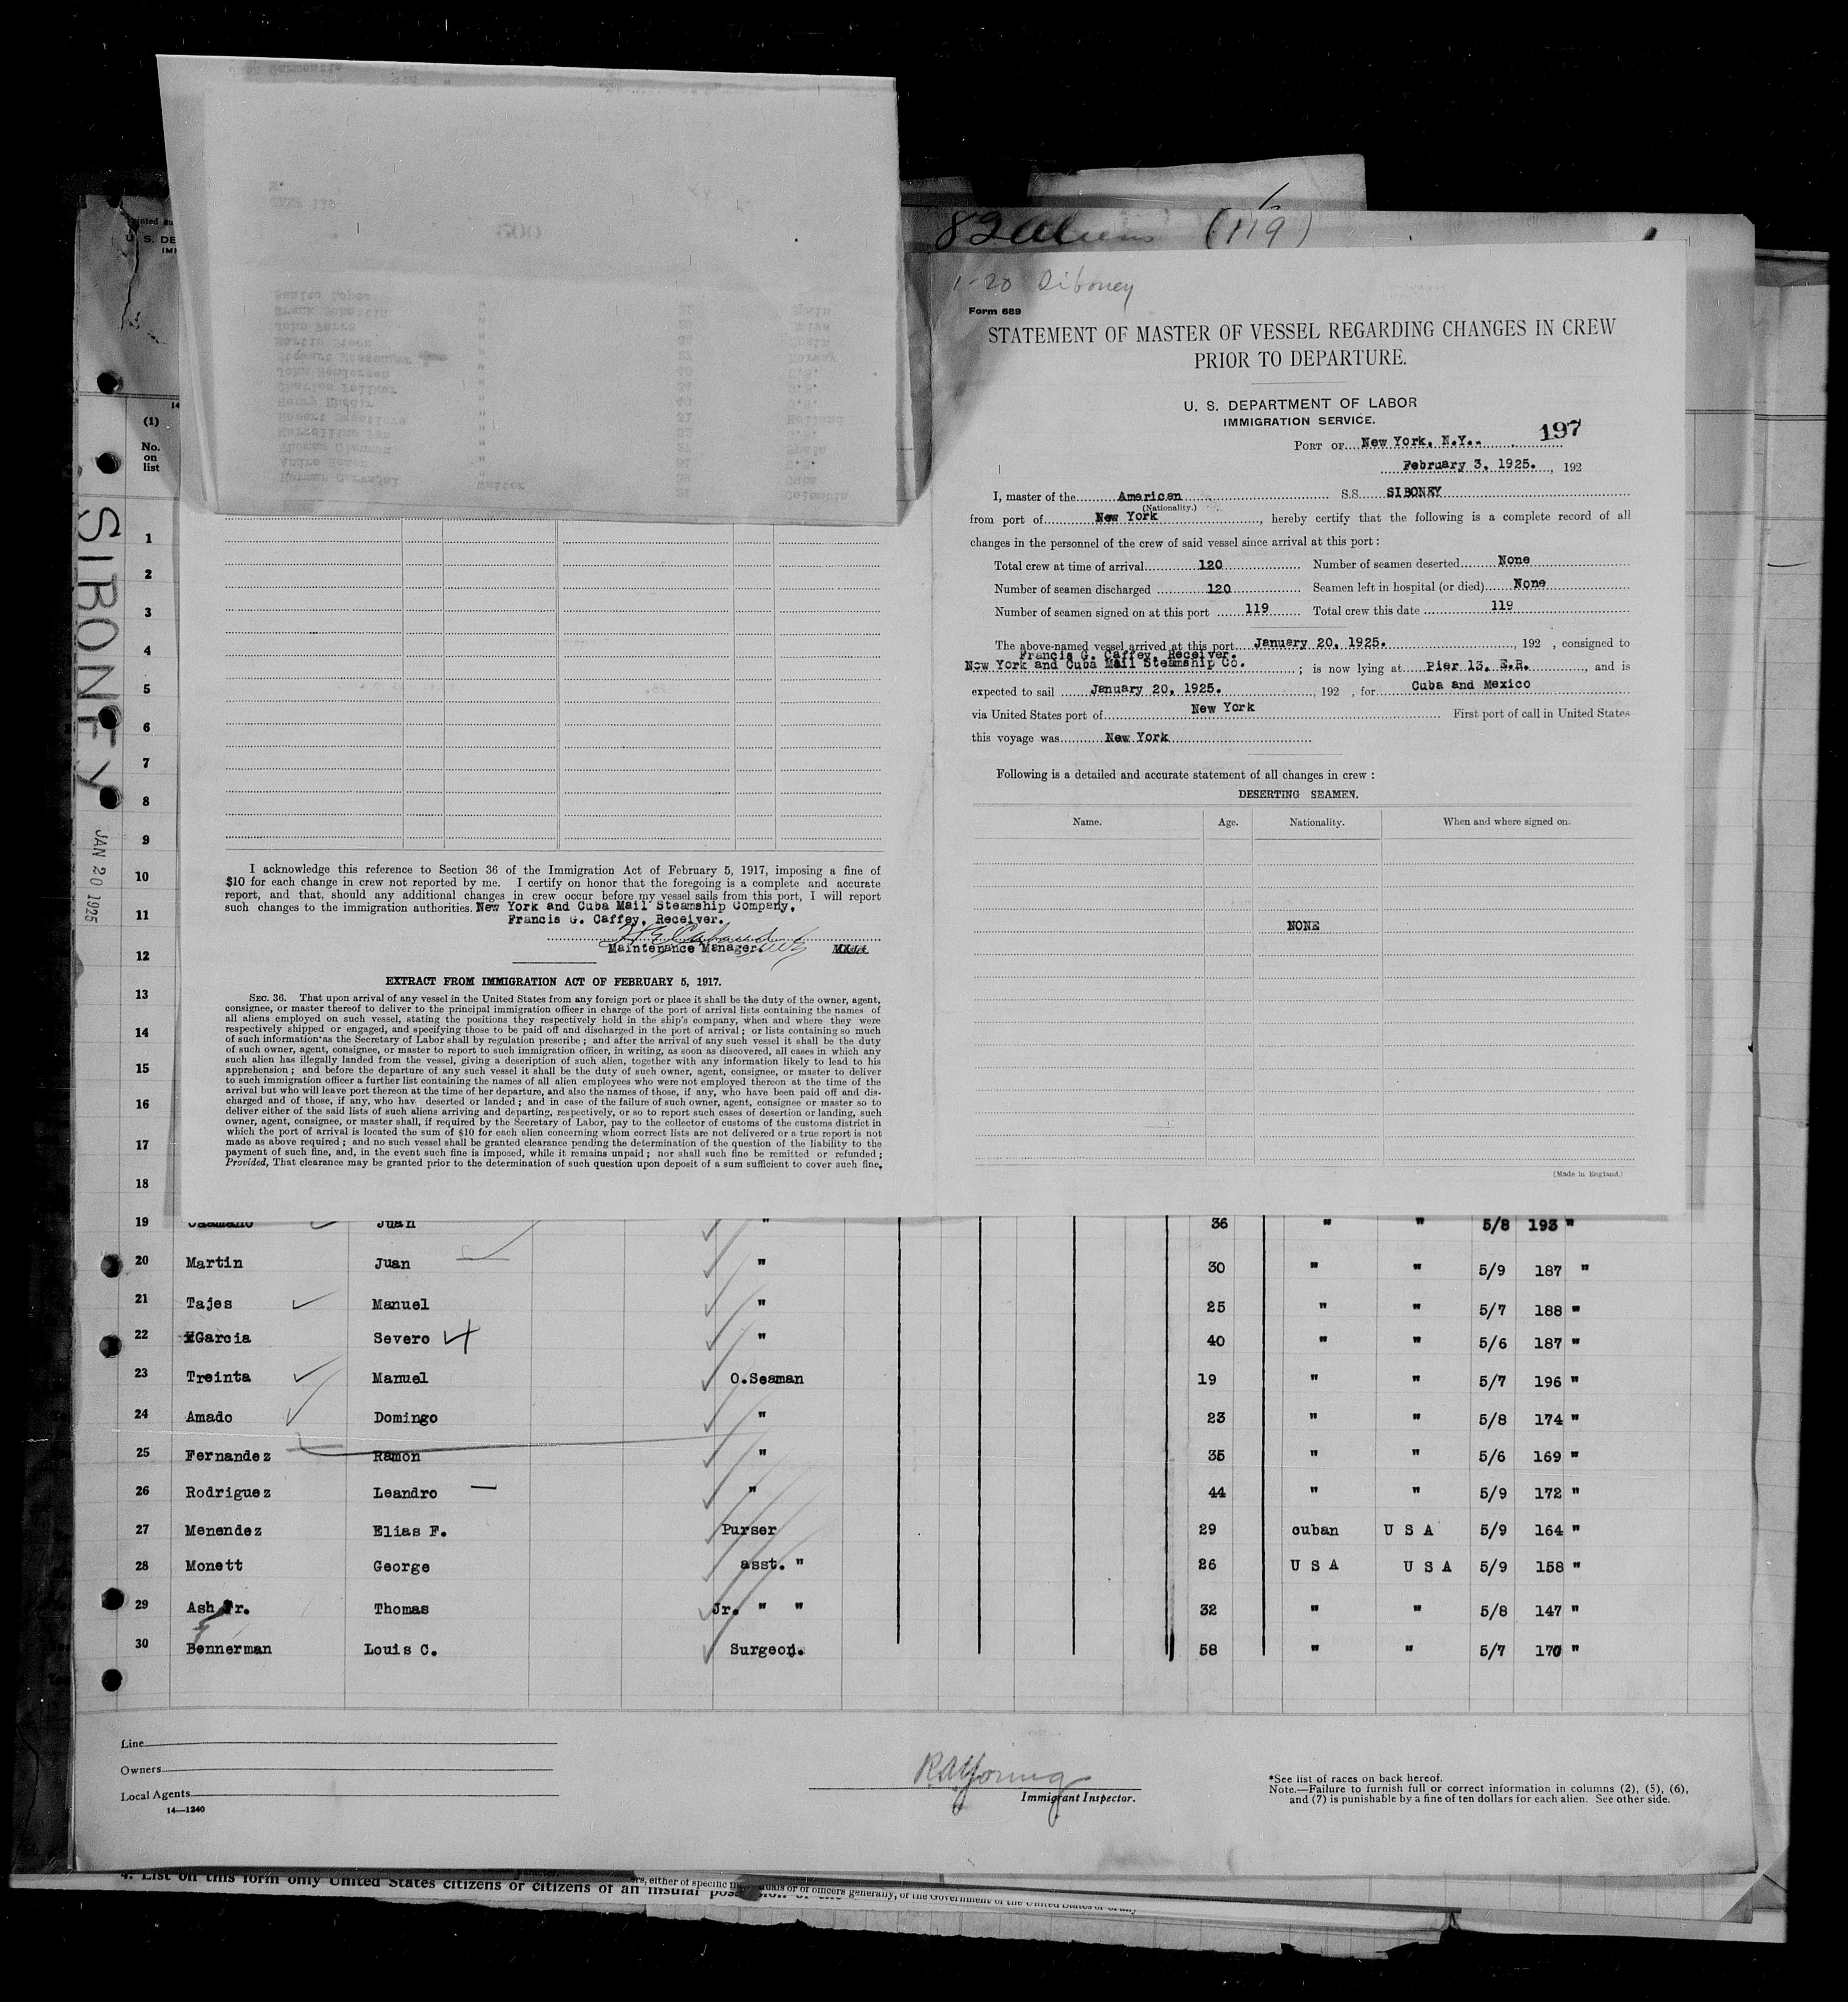 82 Aliens (119)
1-20 Siboney
Form 689
STATEMENT OF MASTER OF VESSEL REGARDING CHANGES IN CREW
PRIOR TO DEPARTURE.
U. S. DEPARTMENT OF LABOR
IMMIGRATION SERVICE.
197
PORT OF New York, N.Y.
February 3, 1925. , 192
I, master of the American S.S. SIBONEY
(Nationality.)
from port of New York , hereby certify that the following is a complete record of all
changes in the personnel of the crew of said vessel since arrival at this port :
Total crew at time of arrival 120 Number of seamen deserted None
Number of seamen discharged 120 Seamen left in hospital (or died) None
Number of seamen signed on at this port 119 Total crew this date 119
The above-named vessel arrived at this port January 20, 1925. , 192 , consigned to
Francis G. Caffey, Receiver.
New York and Cuba Mail Steamship Co. ; is now lying at Pier 13, E.R. , and is
expected to sail January 20, 1925. , 192 , for Cuba and Mexico
via United States port of New York First port of call in United States
this voyage was New York
Following is a detailed and accurate statement of all changes in crew :
DESERTING SEAMEN.
Name. Age. Nationality. When and where signed on.
NONE
(Made in England.)
I acknowledge this reference to Section 36 of the Immigration Act of February 5, 1917, imposing a fine of
$10 for each change in crew not reported by me. I certify on honor that the foregoing is a complete and accurate
report, and that, should any additional changes in crew occur before my vessel sails from this port, I will report
such changes to the immigration authorities. New York and Cuba Mail Steamship Company,
Francis G. Caffey, Receiver.
Maintenance Manager.
EXTRACT FROM IMMIGRATION ACT OF FEBRUARY 5, 1917.
SEC. 36. That upon arrival of any vessel in the United States from any foreign port or place it shall be the duty of the owner, agent,
consignee, or master thereof to deliver to the principal immigration officer in charge of the port of arrival lists containing the names of
all aliens employed on such vessel, stating the positions they respectively hold in the ship's company, when and where they were
respectively shipped or engaged, and specifying those to be paid off and discharged in the port of arrival ; or lists containing so much
of such information as the Secretary of Labor shall by regulation prescribe ; and after the arrival of any such vessel it shall be the duty
of such owner, agent, consignee, or master to report to such immigration officer, in writing, as soon as discovered, all cases in which any
such alien has illegally landed from the vessel, giving a description of such alien, together with any information likely to lead to his
apprehension ; and before the departure of any such vessel it shall be the duty of such owner, agent, consignee, or master to deliver
to such immigration officer a further list containing the names of all alien employees who were not employed thereon at the time of the
arrival but who will leave port thereon at the time of her departure, and also the names of those, if any, who have been paid off and dis-
charged and of those, if any, who hav deserted or landed ; and in case of the failure of such owner, agent, consignee or master so to
deliver either of the said lists of such aliens arriving and departing, respectively, or so to report such cases of desertion or landing, such
owner, agent, consignee, or master shall, if required by the Secretary of Labor, pay to the collector of customs of the customs district in
which the port of arrival is located the sum of $10 for each alien concerning whom correct lists are not delivered or a true report is not
made as above required ; and no such vessel shall be granted clearance pending the determination of the question of the liability to the
payment of such fine, and, in the event such fine is imposed, while it remains unpaid ; nor shall such fine be remitted or refunded ;
Provided, That clearance may be granted prior to the determination of such question upon deposit of a sum sufficient to cover such fine.
SIBONEY
JAN 20 1925
(1)
No.
on
list
1
2
3
4
5
6
7
8
9
10
11
12
13
14
15
16
17
18
19 Juan " 36 " " 5/8 193 "
20 Martin Juan " 30 " " 5/9 187 "
21 Tajes Manuel " 25 " " 5/7 188 "
22 Garcia Severo " 40 " " 5/6 187 "
23 Treinta Manuel O.Seaman 19 " " 5/7 196 "
24 Amado Domingo " 23 " " 5/8 174 "
25 Fernandez Ramon " 35 " " 5/6 169 "
26 Rodriguez Leandro " 44 " " 5/9 172 "
27 Menendez Elias F. Purser 29 cuban U S A 5/9 164 "
28 Monett George asst. " 26 U S A U S A 5/9 158 "
29 Ash Jr. Thomas Jr. " " 32 " " 5/8 147 "
30 Bennerman Louis C. Surgeon. 58 " " 5/7 170 "
Line
Owners
Local Agents
14—1240
R A Young
Immigrant Inspector.
*See list of races on back hereof.
Note.—Failure to furnish full or correct information in columns (2), (5), (6),
and (7) is punishable by a fine of ten dollars for each alien. See other side.
4. List on this form only United States citizens or citizens of an insular